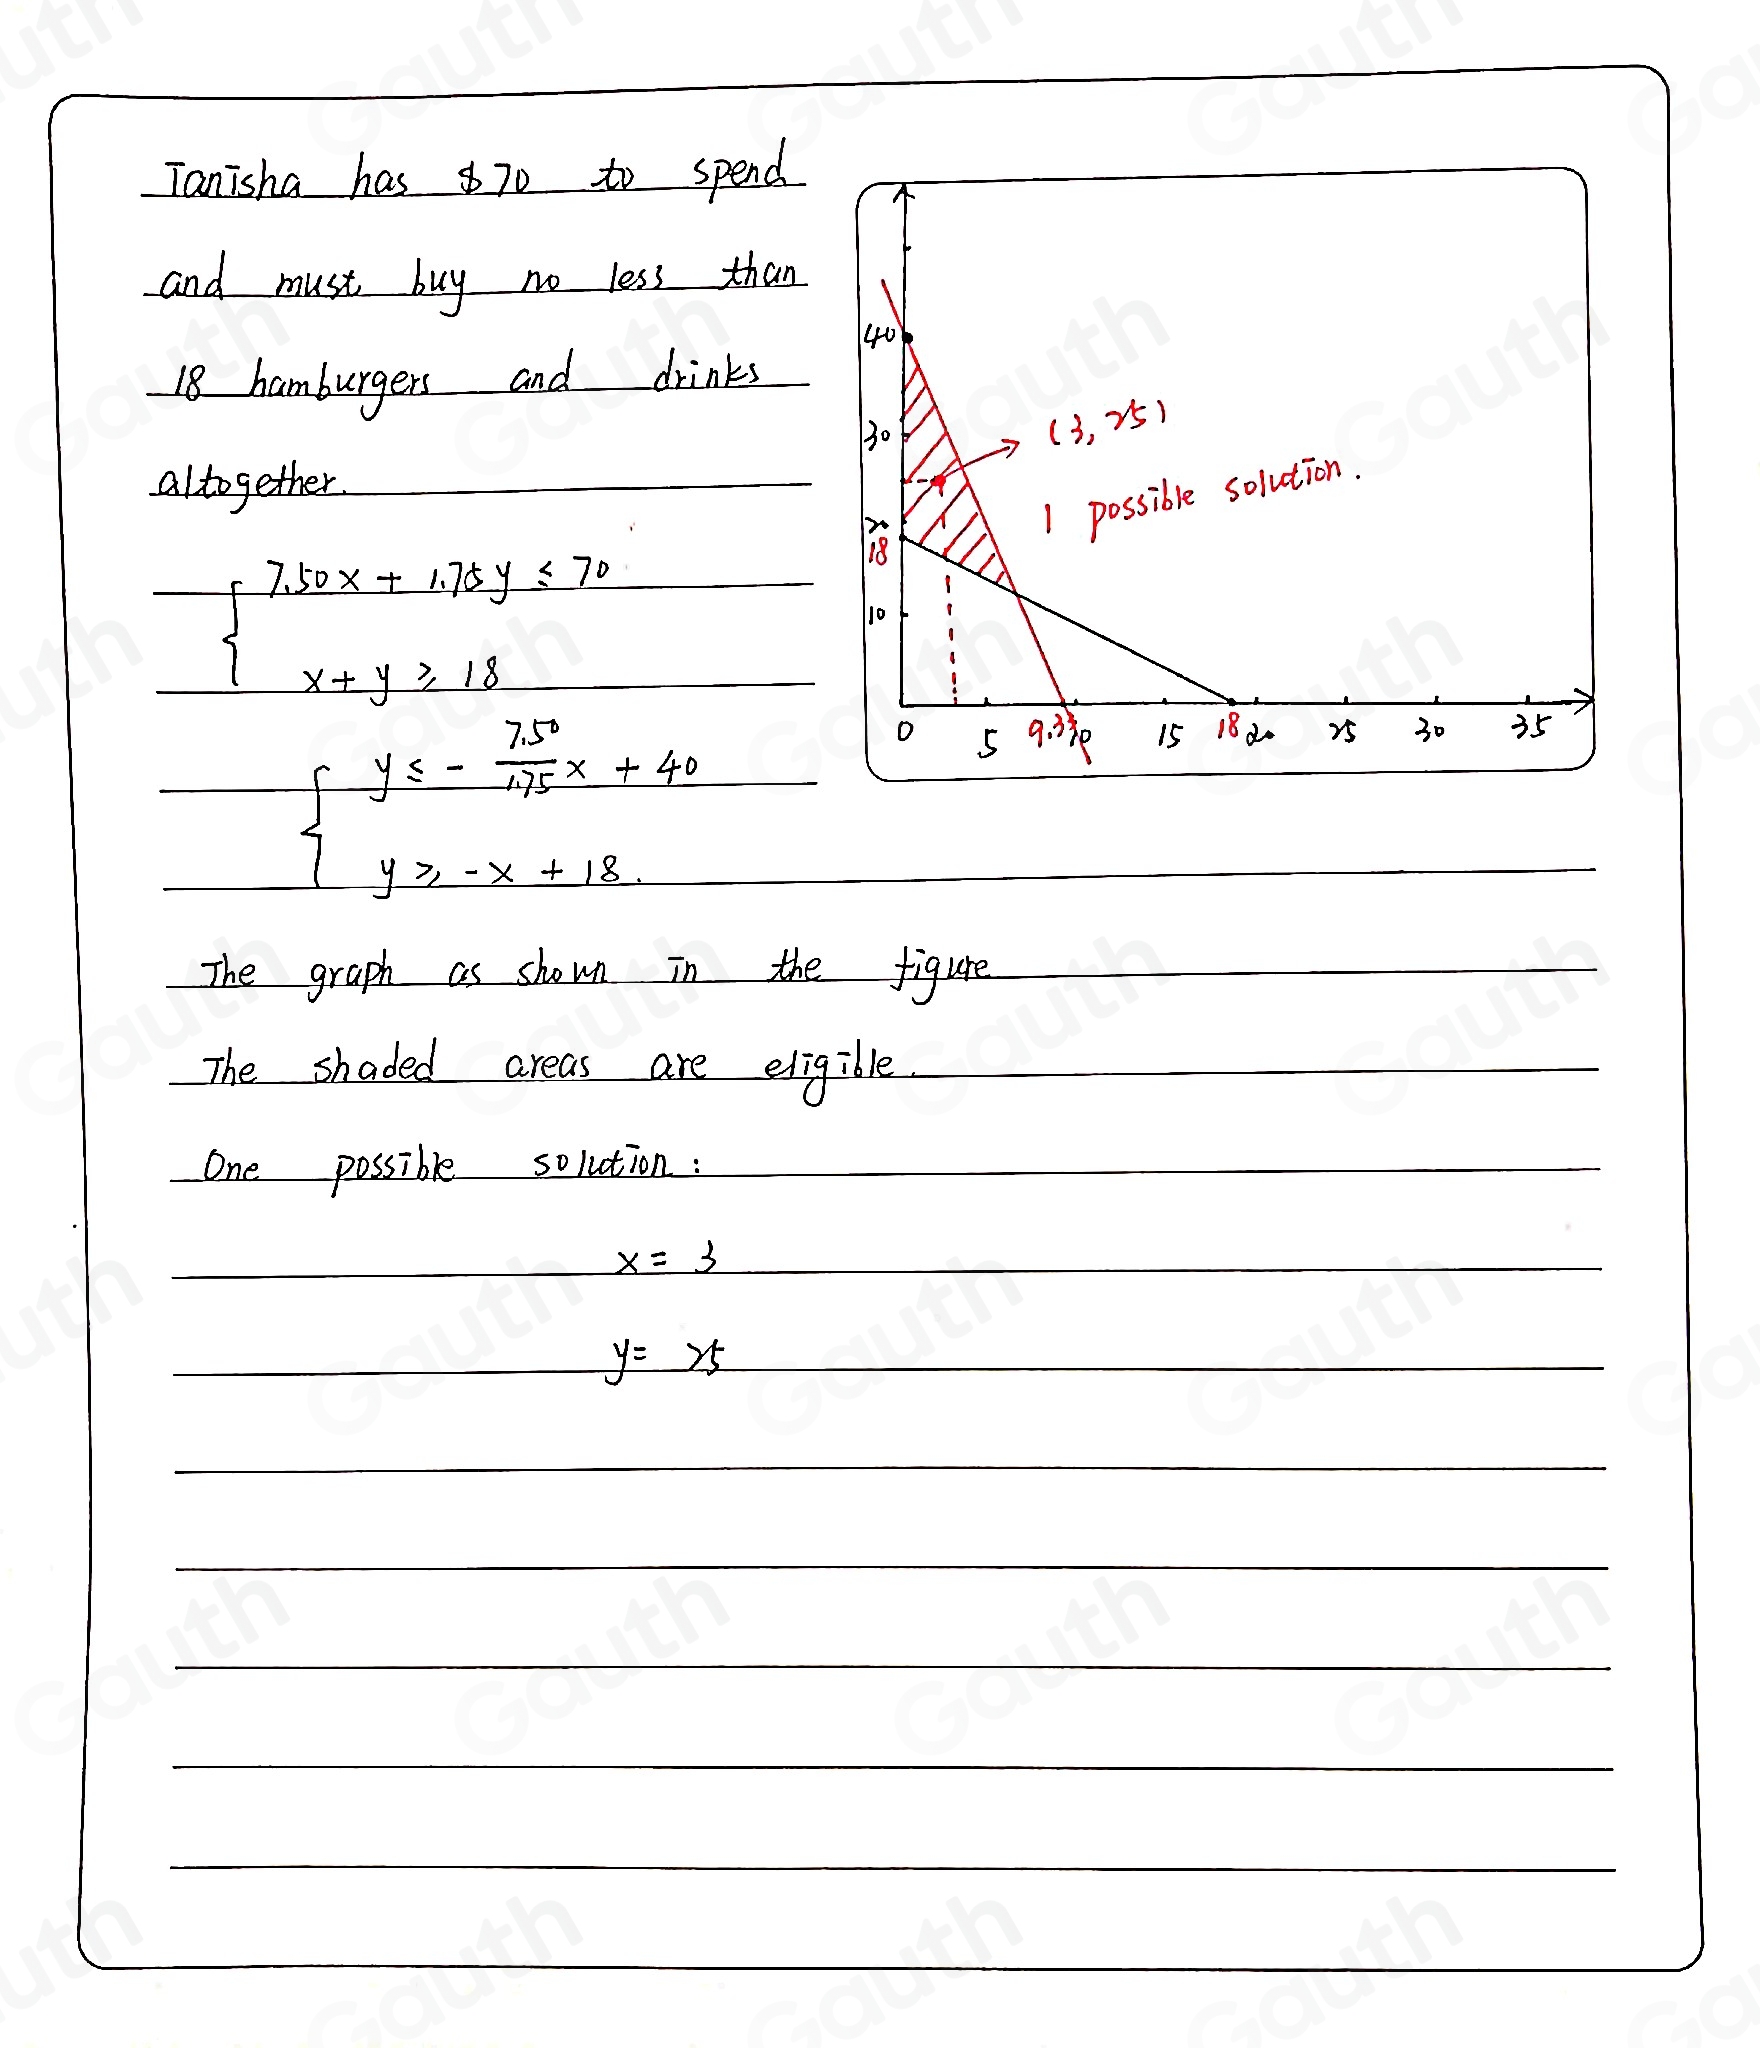 Tanisha has $70 to spend
and must buy no less than
18 hamburgers and drinks
altogether.
7.50x + 1.75y ≤ 70
x + y ≥ 18
y ≤ - 7.50/1.75 x + 40
y ≥ -x + 18.
The graph as shown in the figure
The shaded areas are eligible.
One possible solution:
x = 3
y = 25
40
30
20
18
10
(3, 25)
1 possible solution.
0 5 9.33 10 15 18 20 25 30 35
Gauth